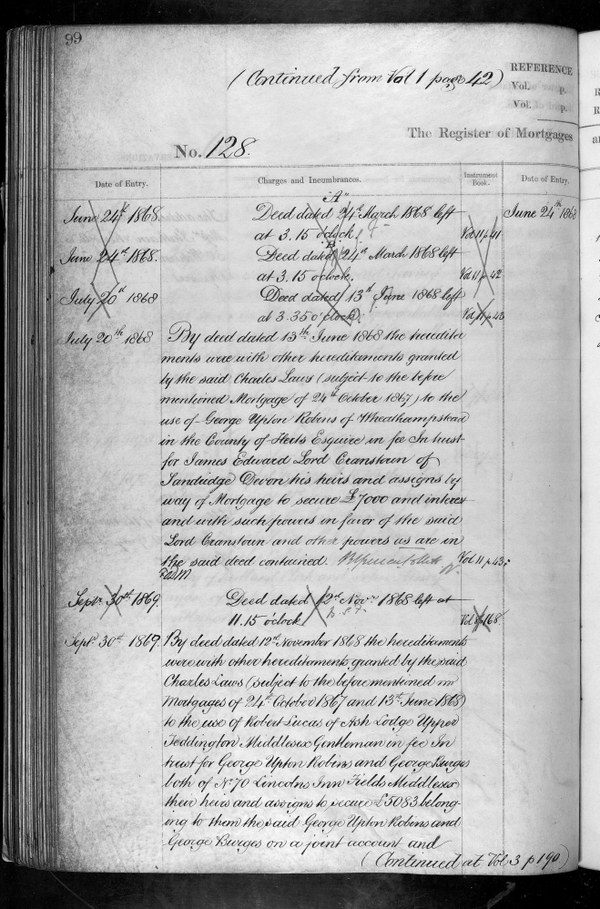 99
(Continued from Vol 1 page 42)
REFERENCE
Vol. p.
Vol. p.
The Register of Mortgages
No. 128.
Date of Entry.
Charges and Incumbrances.
Instrument Book.
Date of Entry.
"A"
June 24th 1868.
Deed dated 24th March 1868 left
June 24th 1868
at 3.15 o'clock.
Vol 11 p 41
"B"
June 24th 1868.
Deed dated 24th March 1868 left
at 3.15 o'clock.
Vol 11 p 42
July 20th 1868
Deed dated 13th June 1868 left
at 3.35 o'clock.
Vol 11 p 43
July 20th 1868
By deed dated 13th June 1868 the heredita
ments were with other hereditaments granted
by the said Charles Laws (subject to the before
mentioned Mortgage of 24th October 1867) to the
use of George Upton Robins of Wheathampstead
in the County of Herts Esquire in fee In trust
for James Edward Lord Cranstown of
Sandridge Devon his heirs and assigns by
way of Mortgage to secure £7000 and interest
and with such powers in favor of the said
Lord Cranstown and other powers as are in
the said deed contained.
Vol 11 p 43
Septr. 30th 1869.
Deed dated 12th Novr. 1868 left at
11.15 o'clock
Vol p 168
Septr. 30th 1869
By deed dated 12th November 1868 the hereditaments
were with other hereditaments granted by the said
Charles Laws (subject to the before mentioned
Mortgages of 24th October 1867 and 13th June 1868)
to the use of Robert Lucas of Ash Lodge Upper
Teddington Middlesex Gentleman in fee In
trust for George Upton Robins and George Burges
both of No 70 Lincolns Inn Fields Middlesex
their heirs and assigns to secure £5083 belong-
ing to them the said George Upton Robins and
George Burges on a joint account and
(Continued at Vol 3 p 190)